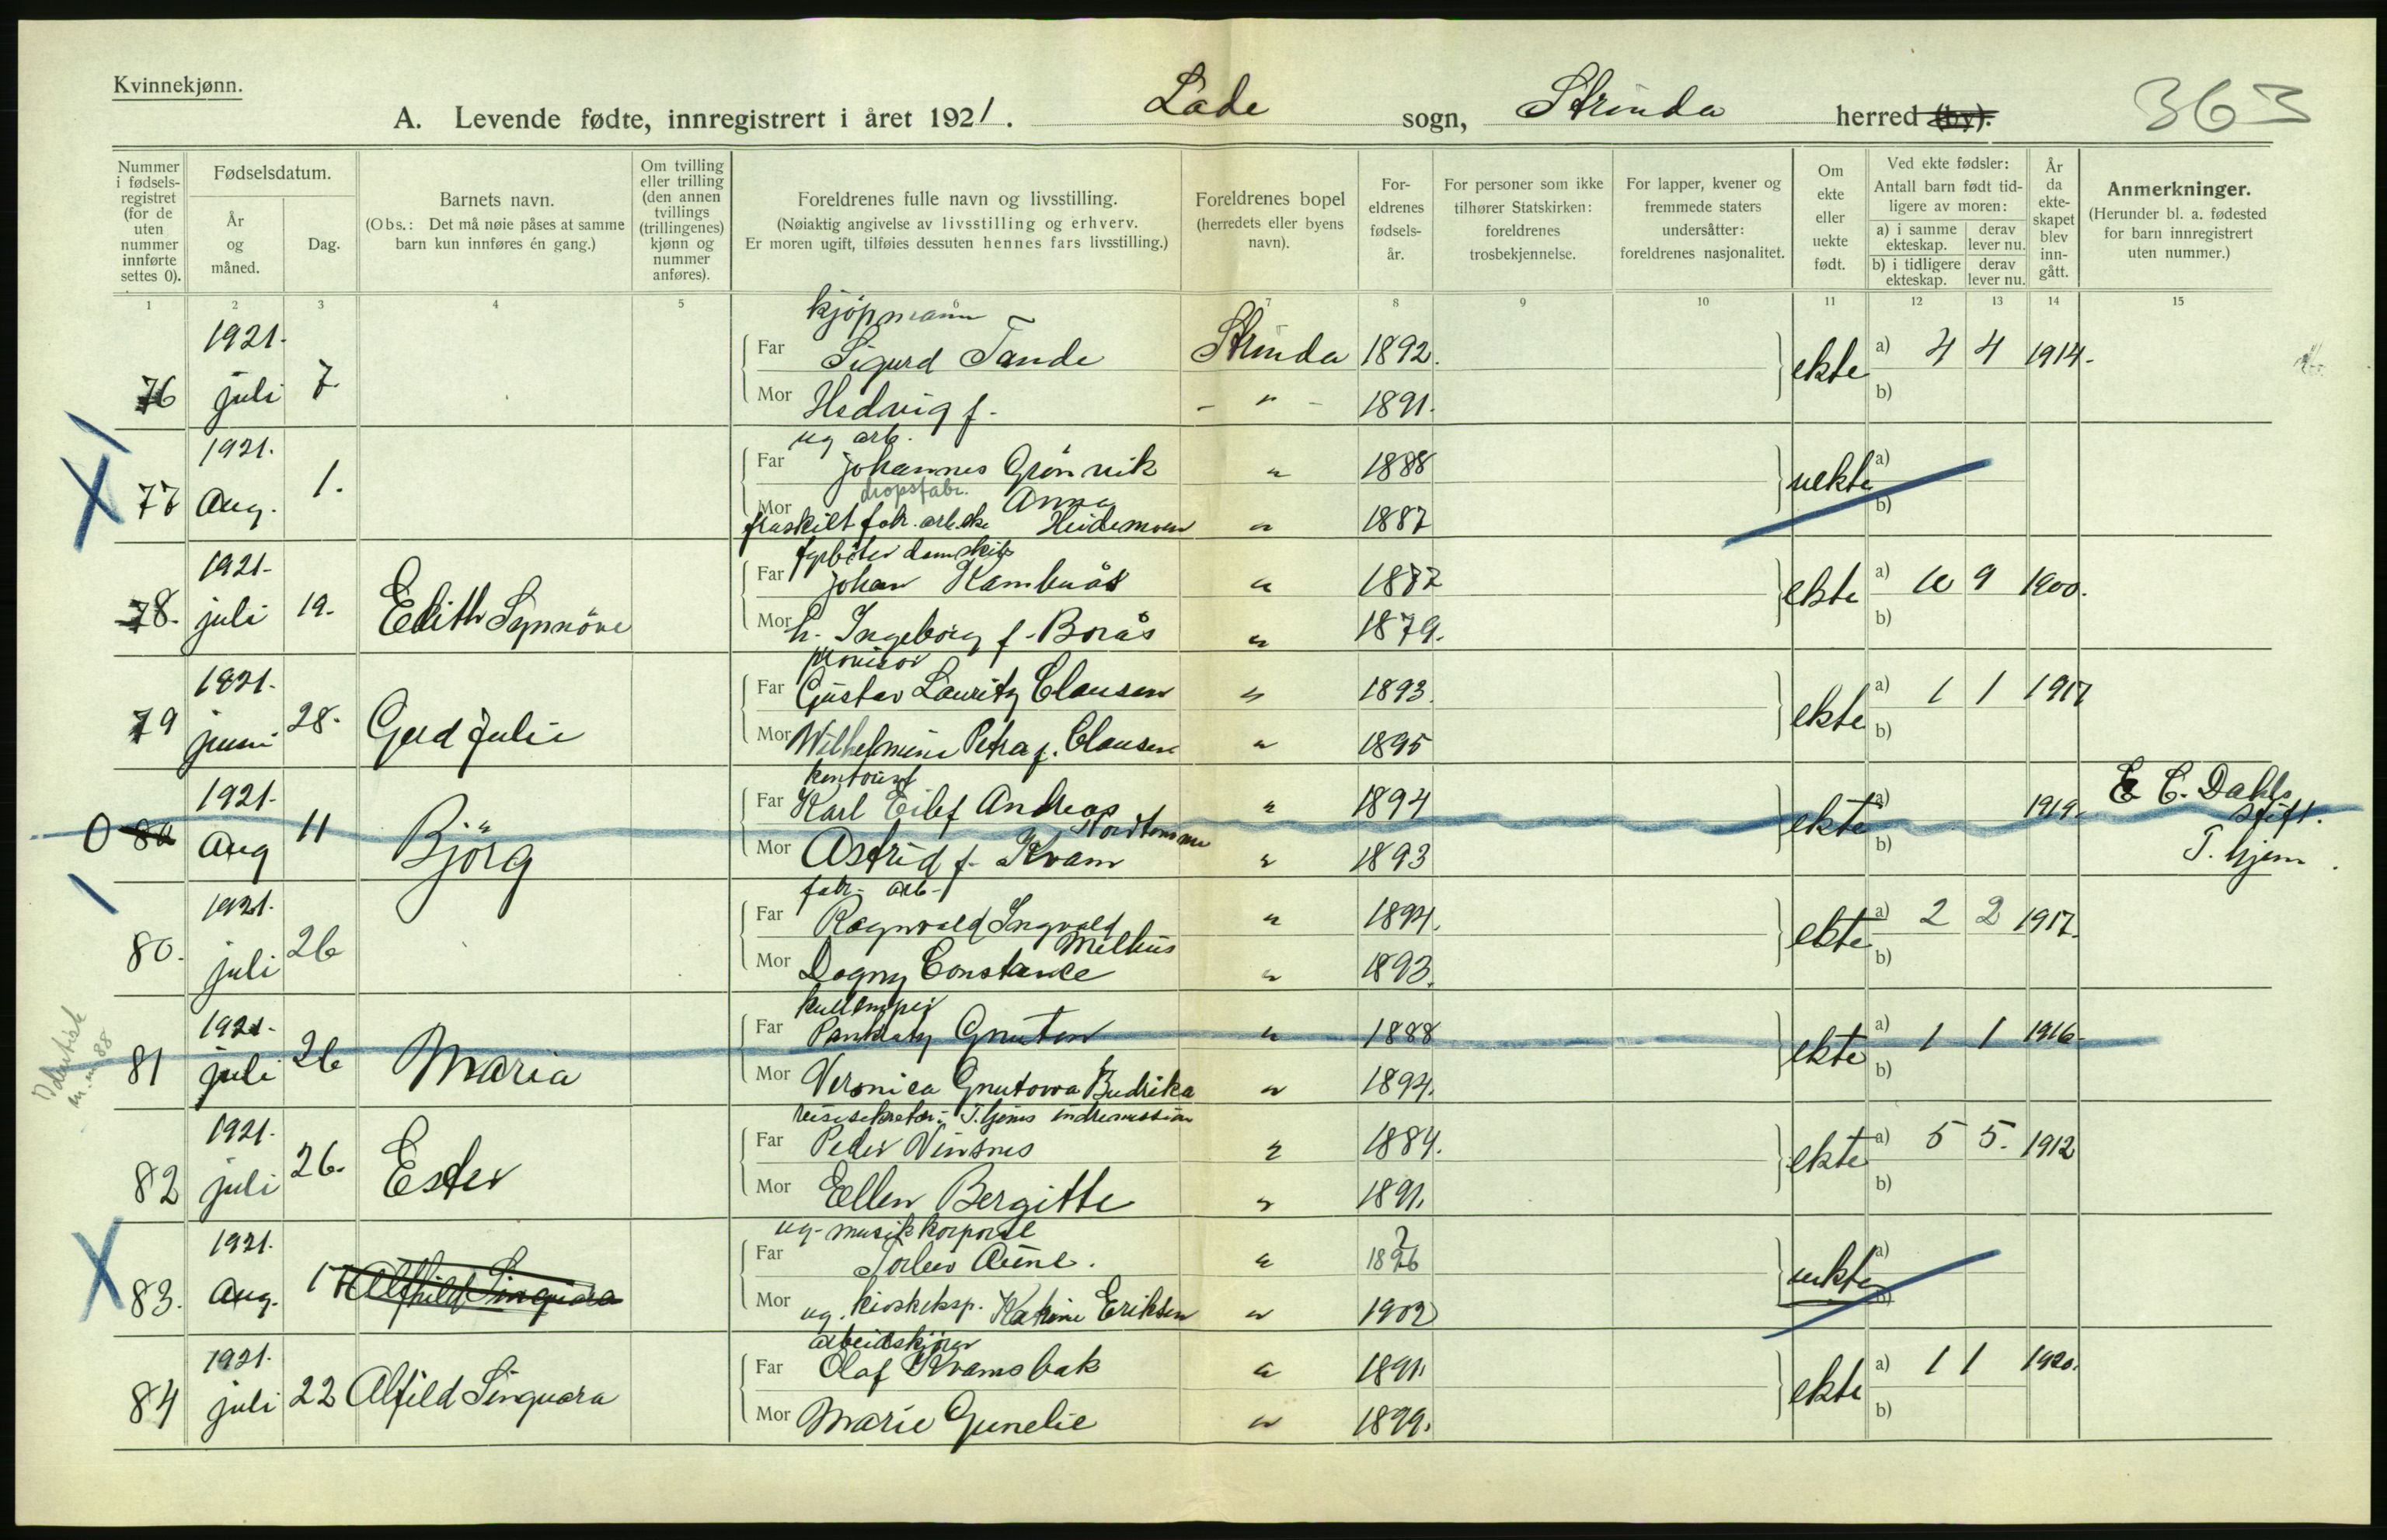 Kvinnekjønn.
A. Levende fødte, innregistrert i året 1921. Lade sogn, Strinda herred (by).
363
Nummer i fødsels-registret (for de uten nummer innførte settes 0).
Fødselsdatum.
År og måned.
Dag.
Barnets navn.
(Obs.: Det må nøie påses at samme barn kun innføres én gang.)
Om tvilling eller trilling (den annen tvillings (trillingenes) kjønn og nummer anføres).
Foreldrenes fulle navn og livsstilling.
(Nøiaktig angivelse av livsstilling og erhverv. Er moren ugift, tilføies dessuten hennes fars livsstilling.)
Foreldrenes bopel (herredets eller byens navn).
For-eldrenes fødsels-år.
For personer som ikke tilhører Statskirken: foreldrenes trosbekjennelse.
For lapper, kvener og fremmede staters undersåtter: foreldrenes nasjonalitet.
Om ekte eller uekte født.
Ved ekte fødsler:
Antall barn født tid-ligere av moren:
a) i samme ekteskap. derav lever nu.
b) i tidligere ekteskap. derav lever nu.
År da ekte-skapet blev inn-gått.
Anmerkninger.
(Herunder bl. a. fødested for barn innregistrert uten nummer.)
1 2 3 4 5 6 7 8 9 10 11 12 13 14 15
kjøpmann
76 1921. juli 7. Far Sigurd Tande Strinda 1892. ekte a) 4 4 1914.
Mor Hedvig f. - " - 1891. b)
ug arb.
X 77 1921. Aug. 1. Far Johannes Grønvik " 1888 uekte a)
dropsfabr. Anna
Mor fraskilt fabr. arb.ske Heidemoen " 1887 b)
fyrbøter damskib
78. 1921. juli 19. Edith Synnöve Far Johan Kambuås " 1877 ekte a) 10 9 1900.
Mor h. Ingeborg f. Borås " 1879. b)
provisor
79 1921. juni 28. Gerd Julie Far Gustav Lauritz Clausen " 1893. ekte a) 1 1 1917
Mor Wilhelmine Petra f. Clausen " 1895 b)
kontorist
0 80 1921. Aug 11 Björg Far Karl Eilef Andreas " 1894 ekte a) 1919. E. C. Dahls stift.
Nordtømme
Mor Astrid f. Kvam " 1893 b) T. hjem.
fabr. arb.
80. 1921. juli 26 Far Ragnvald Ingvald " 1894. ekte a) 2 2 1917.
Melhus
Mor Dagny Constance " 1893. b)
kullemper
81 1921. juli 26 Maria Far Pankraty Gnutow " 1888 ekte a) 1 1 1916
Mor Veronica Gnutowa Budrika " 1894. b)
reisesekretær. T.hjems indremission
82 1921. juli 26. Ester Far Peder Vinsnes " 1884. ekte a) 5 5. 1912
Mor Ellen Bergitte " 1891. b)
ug. musikkorporal
X 83. 1921. Aug. 17 Alfhild Singvara Far Torleiv Aune. " 1896 ? uekte a)
Mor ug. kioskeksp. Katrine Eriksen " 1902 b)
arbeidskjører
84 1921. juli 22 Alfild Singvara Far Olaf Kvamsbak " 1891. ekte a) 1 1 1920.
Mor Marie Gunelie " 1899. b)